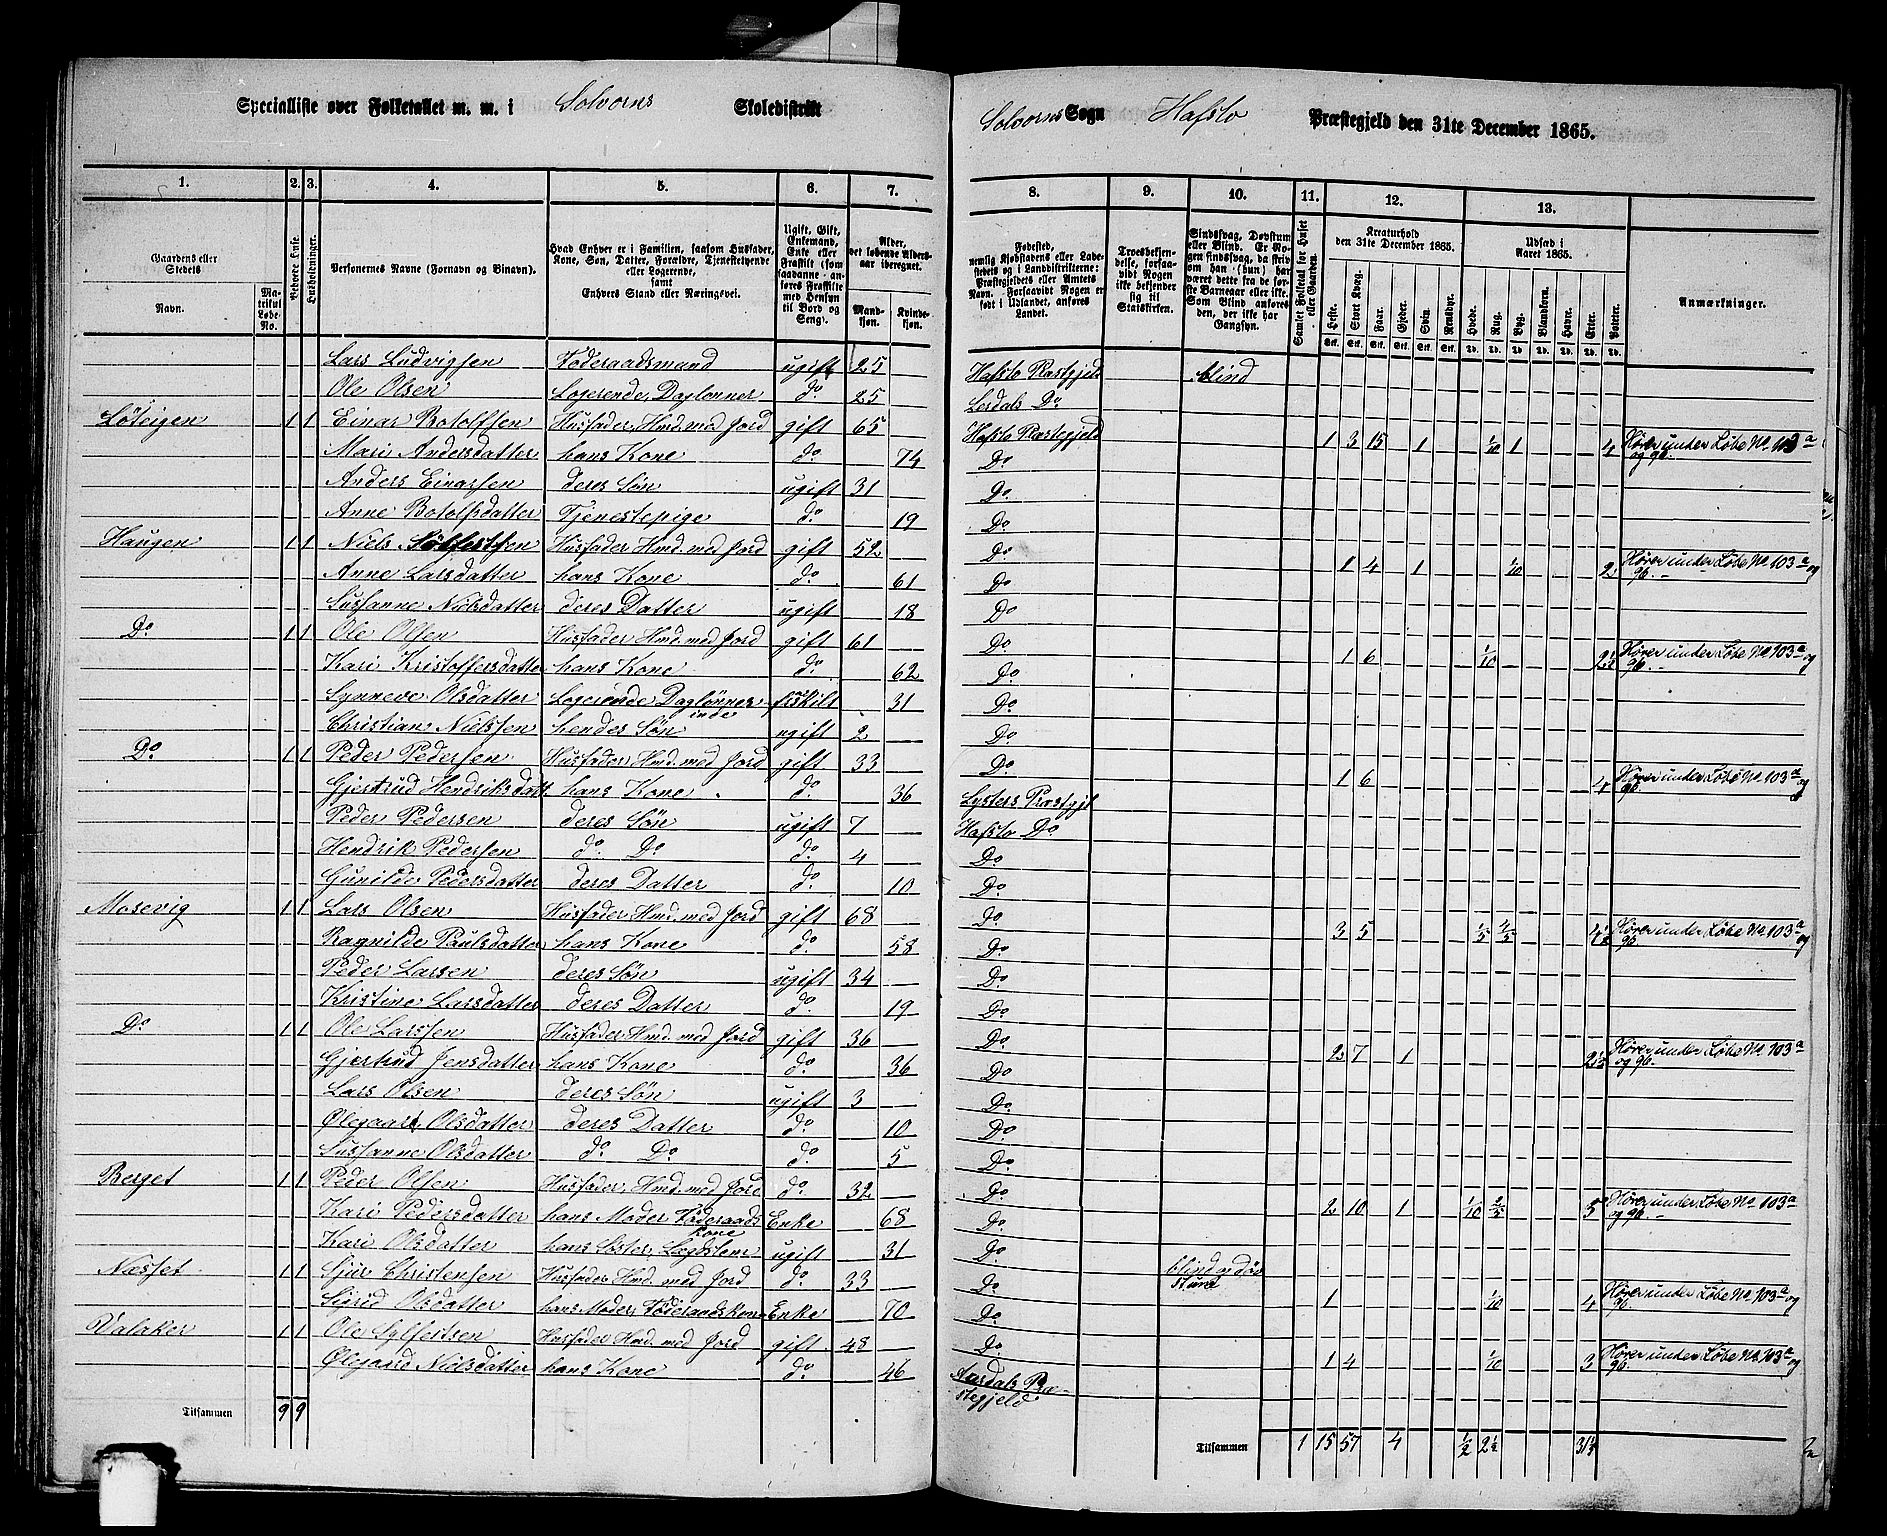 Specialliste over Folketallet m. m. i Solvorns Skoledistrikt
Solvorns Sogn Hafslo Præstegjeld den 31te December 1865.
1. 2. 3. 4. 5. 6. 7. 8. 9. 10. 11. 12. 13.
Gaardens eller Stedets
Navn.
Matrikul Løbe-No.
Bebøede Huse.
Husholdninger.
Personernes Navne (Fornavn og Binavn).
Hvad Enhver er i Familien, saasom Husfader, Kone, Søn, Datter, Forældre, Tjenestetyende eller Logerende, samt Enhvers Stand eller Næringsvei.
Ugift, Gift, Enkemand, Enke eller Fraskilt (som saadanne anføres Fraskilte med Hensyn til Bord og Seng).
Alder, det løbende Aldersaar iberegnet.
Mandkjøn. Kvindekjøn.
Fødested, nemlig Kjøbstadens eller Ladestedets og i Landdistrikterne: Præstegjeldets eller Amtets Navn. Forsaavidt Nogen er født i Udlandet, anføres Landet.
Troesbekjendelse, forsaavidt Nogen ikke bekjender sig til Statskirken.
Sindssvag, Døvstum eller Blind. Er Nogen sindssvag, da skrives om han (hun) har været dette fra de første Barneaar eller ikke. Som Blind anføres den, der ikke har Gangsyn.
Samlet Folketal for Huset eller Gaarden.
Kreaturhold den 31te December 1865.
Heste. Stort Kvæg. Faar. Gjeder. Sviin. Rensdyr.
Udsæd i Aaret 1865.
Hvede. Rug. Byg. Blandkorn. Havre. Erter. Poteter.
Anmærkninger.
Lars Ludvigsen Føderaadsmand ugift 25 Hafslo Præstgjeld blind
Ole Olsen Logerende, Daglønner do 25 Lerdals Do
Løteigen 1 1 Einar Botolfsen Husfader, Hmd. med Jord gift 65 Hafslo Præstegjeld 1 3 15 1 1/10 1 4 Hører under Løbe No 103 a og 96.
Mari Andersdatter hans Kone do 74 Do
Anders Einarsen deres Søn ugift 31 Do
Anne Botolfsdatter Tjenestepige do 19 Do
Haugen 1 1 Niels Sølfestsen Husfader Hmd. med Jord gift 52 Do 1 4 1 1/10 2 Hører under Løbe No 103 a og 96.
Anne Larsdatter hans Kone do 61 Do
Susanne Nielsdatter deres Datter ugift 18 Do
Do 1 1 Ole Olsen Husfader Hmd. med Jord gift 61 Do 1 6 1/10 2 1/2 Hører under Løbe No 103 a og 96.
Kari Kristoffersdatter hans Kone do 62 Do
Synneve Olsdatter Logerende Daglønnerinde fraskilt 31 Do
Christian Nielssen hendes Søn ugift 2 Do
Do 1 1 Peder Pedersen Husfader Hmd. med Jord gift 33 Do 1 6 4 Hører under Løbe No 103 a og 96.
Gjertrud Hendriksdatt. hans Kone do 36 Lysters Præstgjl
Peder Pedersen deres Søn ugift 7 Hafslo Do
Hendrik Pedersen do Do do 4 Do
Gunilde Pedersdatter deres Datter do 10 Do
Mosevig 1 1 Lars Olsen Husfader, Hmd. med Jord gift 68 Do 3 5 1/5 4/5 4 1/2 Hører under Løbe No 103 a og 96
Ragnilde Paulsdatter hans Kone do 58 Do
Peder Larsen deres Søn ugift 34 Do
Kristine Larsdatter deres Datter do 19 Do
Do 1 1 Ole Larssen Husfader, Hmd. med Jord gift 36 Do 2 7 1 2 1/2 Hører under Løbe No 103 a og 96.
Gjertrud Jensdatter hans Kone do 36 Do
Lars Olsen deres Søn ugift 3 Do
Ølegaard Olsdatter deres Datter do 10 Do
Susanne Olsdatter do Do do 5 Do
Berget 1 1 Peder Olsen Husfader, Hmd. med Jord do 32 Do 2 10 1 1/10 2/5 5 Hører under Løbe No 103 a og 96.
Kari Pedersdatter hans Moder Føderaads Kone Enke 68 Do
Kari Olsdatter hans Søster, Lægdslem ugift 31 Do
Næsset 1 1 Sjur Christensen Husfader Hmd. med Jord do 33 Do blind og døvstum 1 1/10 4 Hører under Løbe No 103 a og 96.
Sigrid Olsdatter hans Moder, Føderaadskone Enke 70 Do
Valaker 1 1 Ole Sylfestsen Husfader Hmd. med Jord gift 48 Do 1 4 1/10 3 Hører under Løbe No 103 a og 96.
Ølegaard Nielsdatter hans Kone do 46 Aardals Præstegjeld
Tilsammen 9 9
Tilsammen 1 15 57 4 1/2 2 1/2 31 1/2